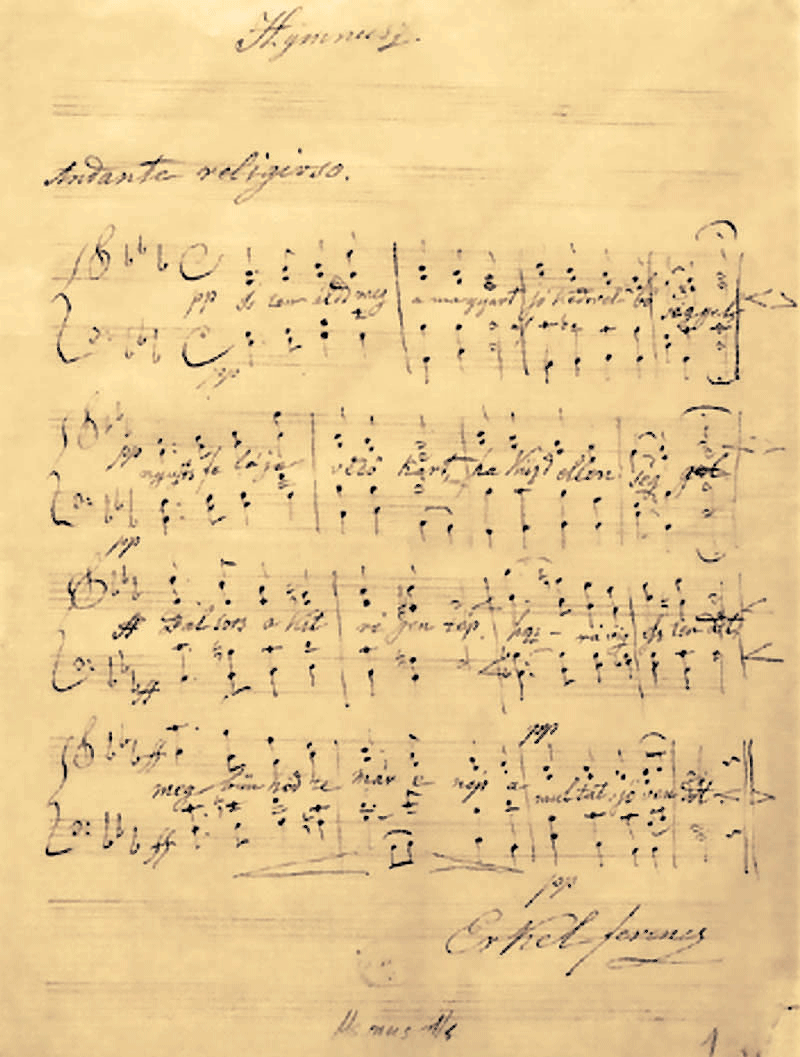 Hymnusz.
Andante religioso.
pp Isten áldd meg a magyart jó kedvvel bőséggel
pp
pp nyujts feléje védő kart, ha küzd ellenséggel
pp
ff Bal sors a kit régen tép, hozz-rá víg Esztendőt,
ff
pp
ff meg bünhödte már e nép a multat, jövendőt
ff
pp
Erkel Ferencz